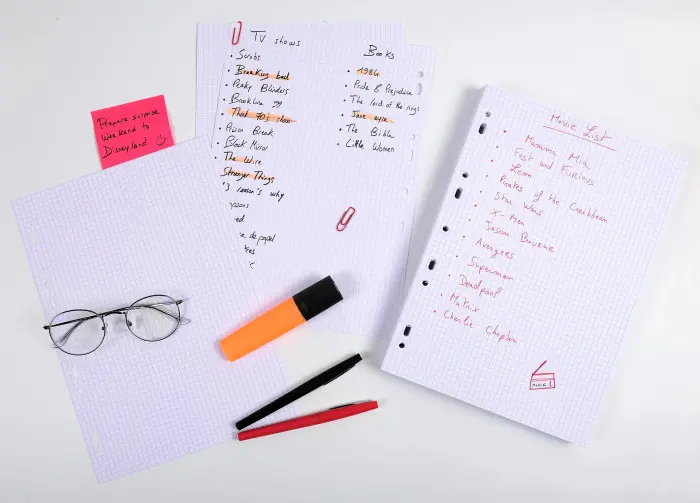 Prepare surprise
Weekend to
Disneyland ☺
TV shows
• Scrubs
• Breaking bad
• Peaky Blinders
• Brooklin 99
• That 70's show
• Prison Break
• Black Mirror
• The Wire
• Stranger Things
3 reason's why
ed
de papel
Books
• 1984
• Pride & Prejudice
• The lord of the rings
• Jane eyre
• The Bible
• Little Women
Movie List
• Mamma Mia
• Fast and Furious
• Leon
• Pirates of the Caribbean
• Star Wars
• X-Men
• Jason Bourne
• Avengers
• Superman
• Deadpool
• Matrix
• Charlie Chaplin
MOVIE